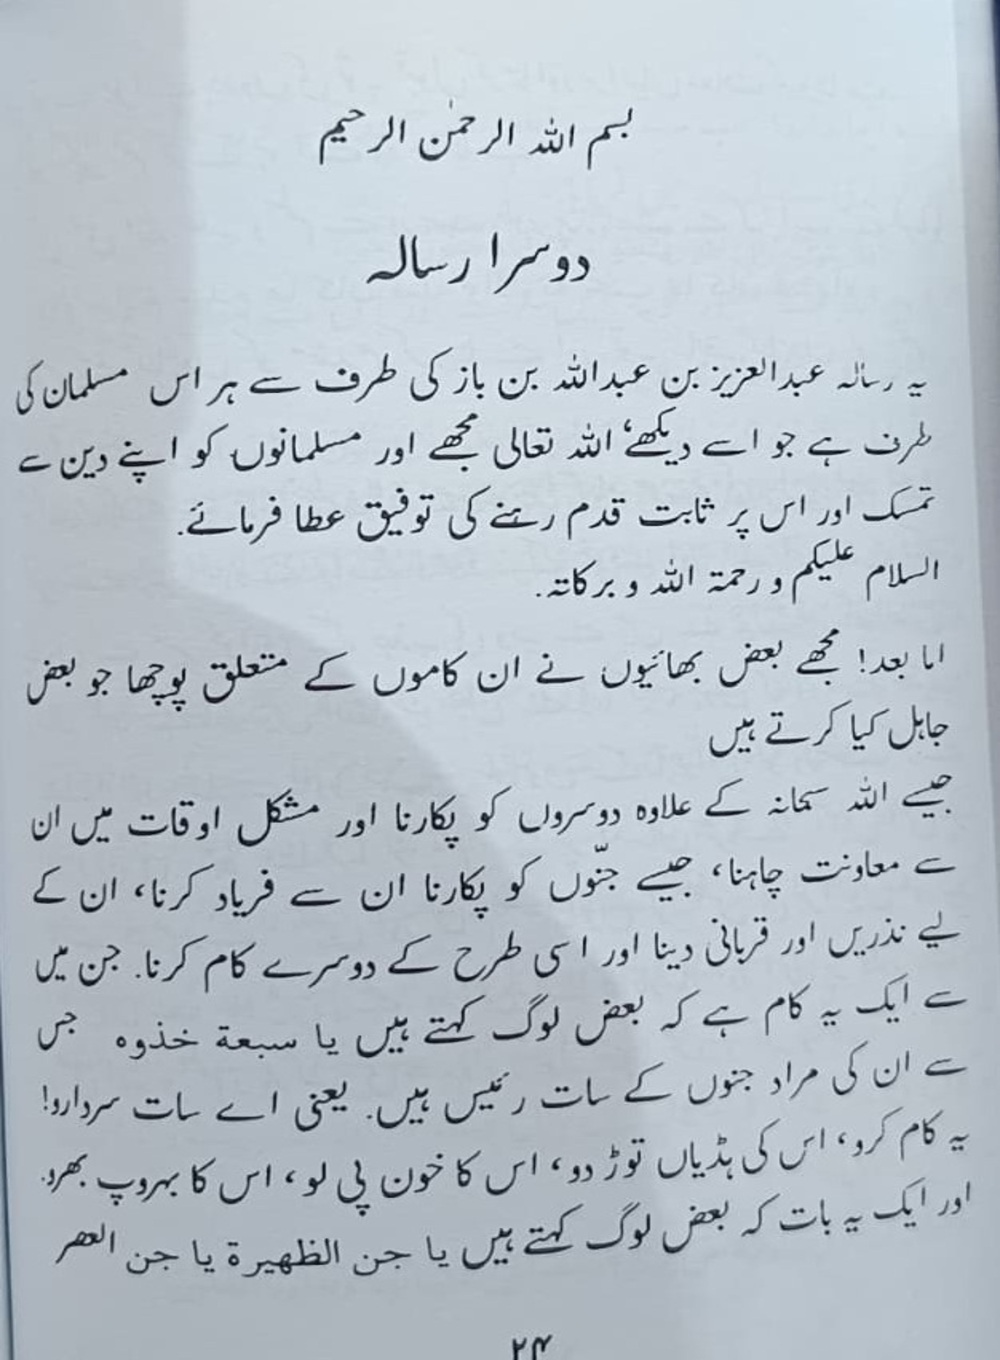 بسم اللہ الرحمٰن الرحیم
دوسرا رسالہ
یہ رسالہ عبدالعزیز بن عبداللہ بن باز کی طرف سے ہر اس مسلمان کی
طرف ہے جو اسے دیکھے، اللہ تعالی مجھے اور مسلمانوں کو اپنے دین سے
تمسک اور اس پر ثابت قدم رہنے کی توفیق عطا فرمائے.
السلام علیکم و رحمۃ اللہ و برکاتہ.
اما بعد! مجھے بعض بھائیوں نے ان کاموں کے متعلق پوچھا جو بعض
جاہل کیا کرتے ہیں
جیسے اللہ سبحانہ کے علاوہ دوسروں کو پکارنا اور مشکل اوقات میں ان
سے معاونت چاہنا، جیسے جنّوں کو پکارنا ان سے فریاد کرنا، ان کے
لیے نذریں اور قربانی دینا اور اسی طرح کے دوسرے کام کرنا. جن میں
سے ایک یہ کام ہے کہ بعض لوگ کہتے ہیں یا سبعة خذوه جس
سے ان کی مراد جنوں کے سات رئیس ہیں. یعنی اے سات سردارو!
یہ کام کرو، اس کی ہڈیاں توڑ دو، اس کا خون پی لو، اس کا بہروپ بھرو.
اور ایک یہ بات کہ بعض لوگ کہتے ہیں یا جن الظهيرة یا جن العصر
۲۴